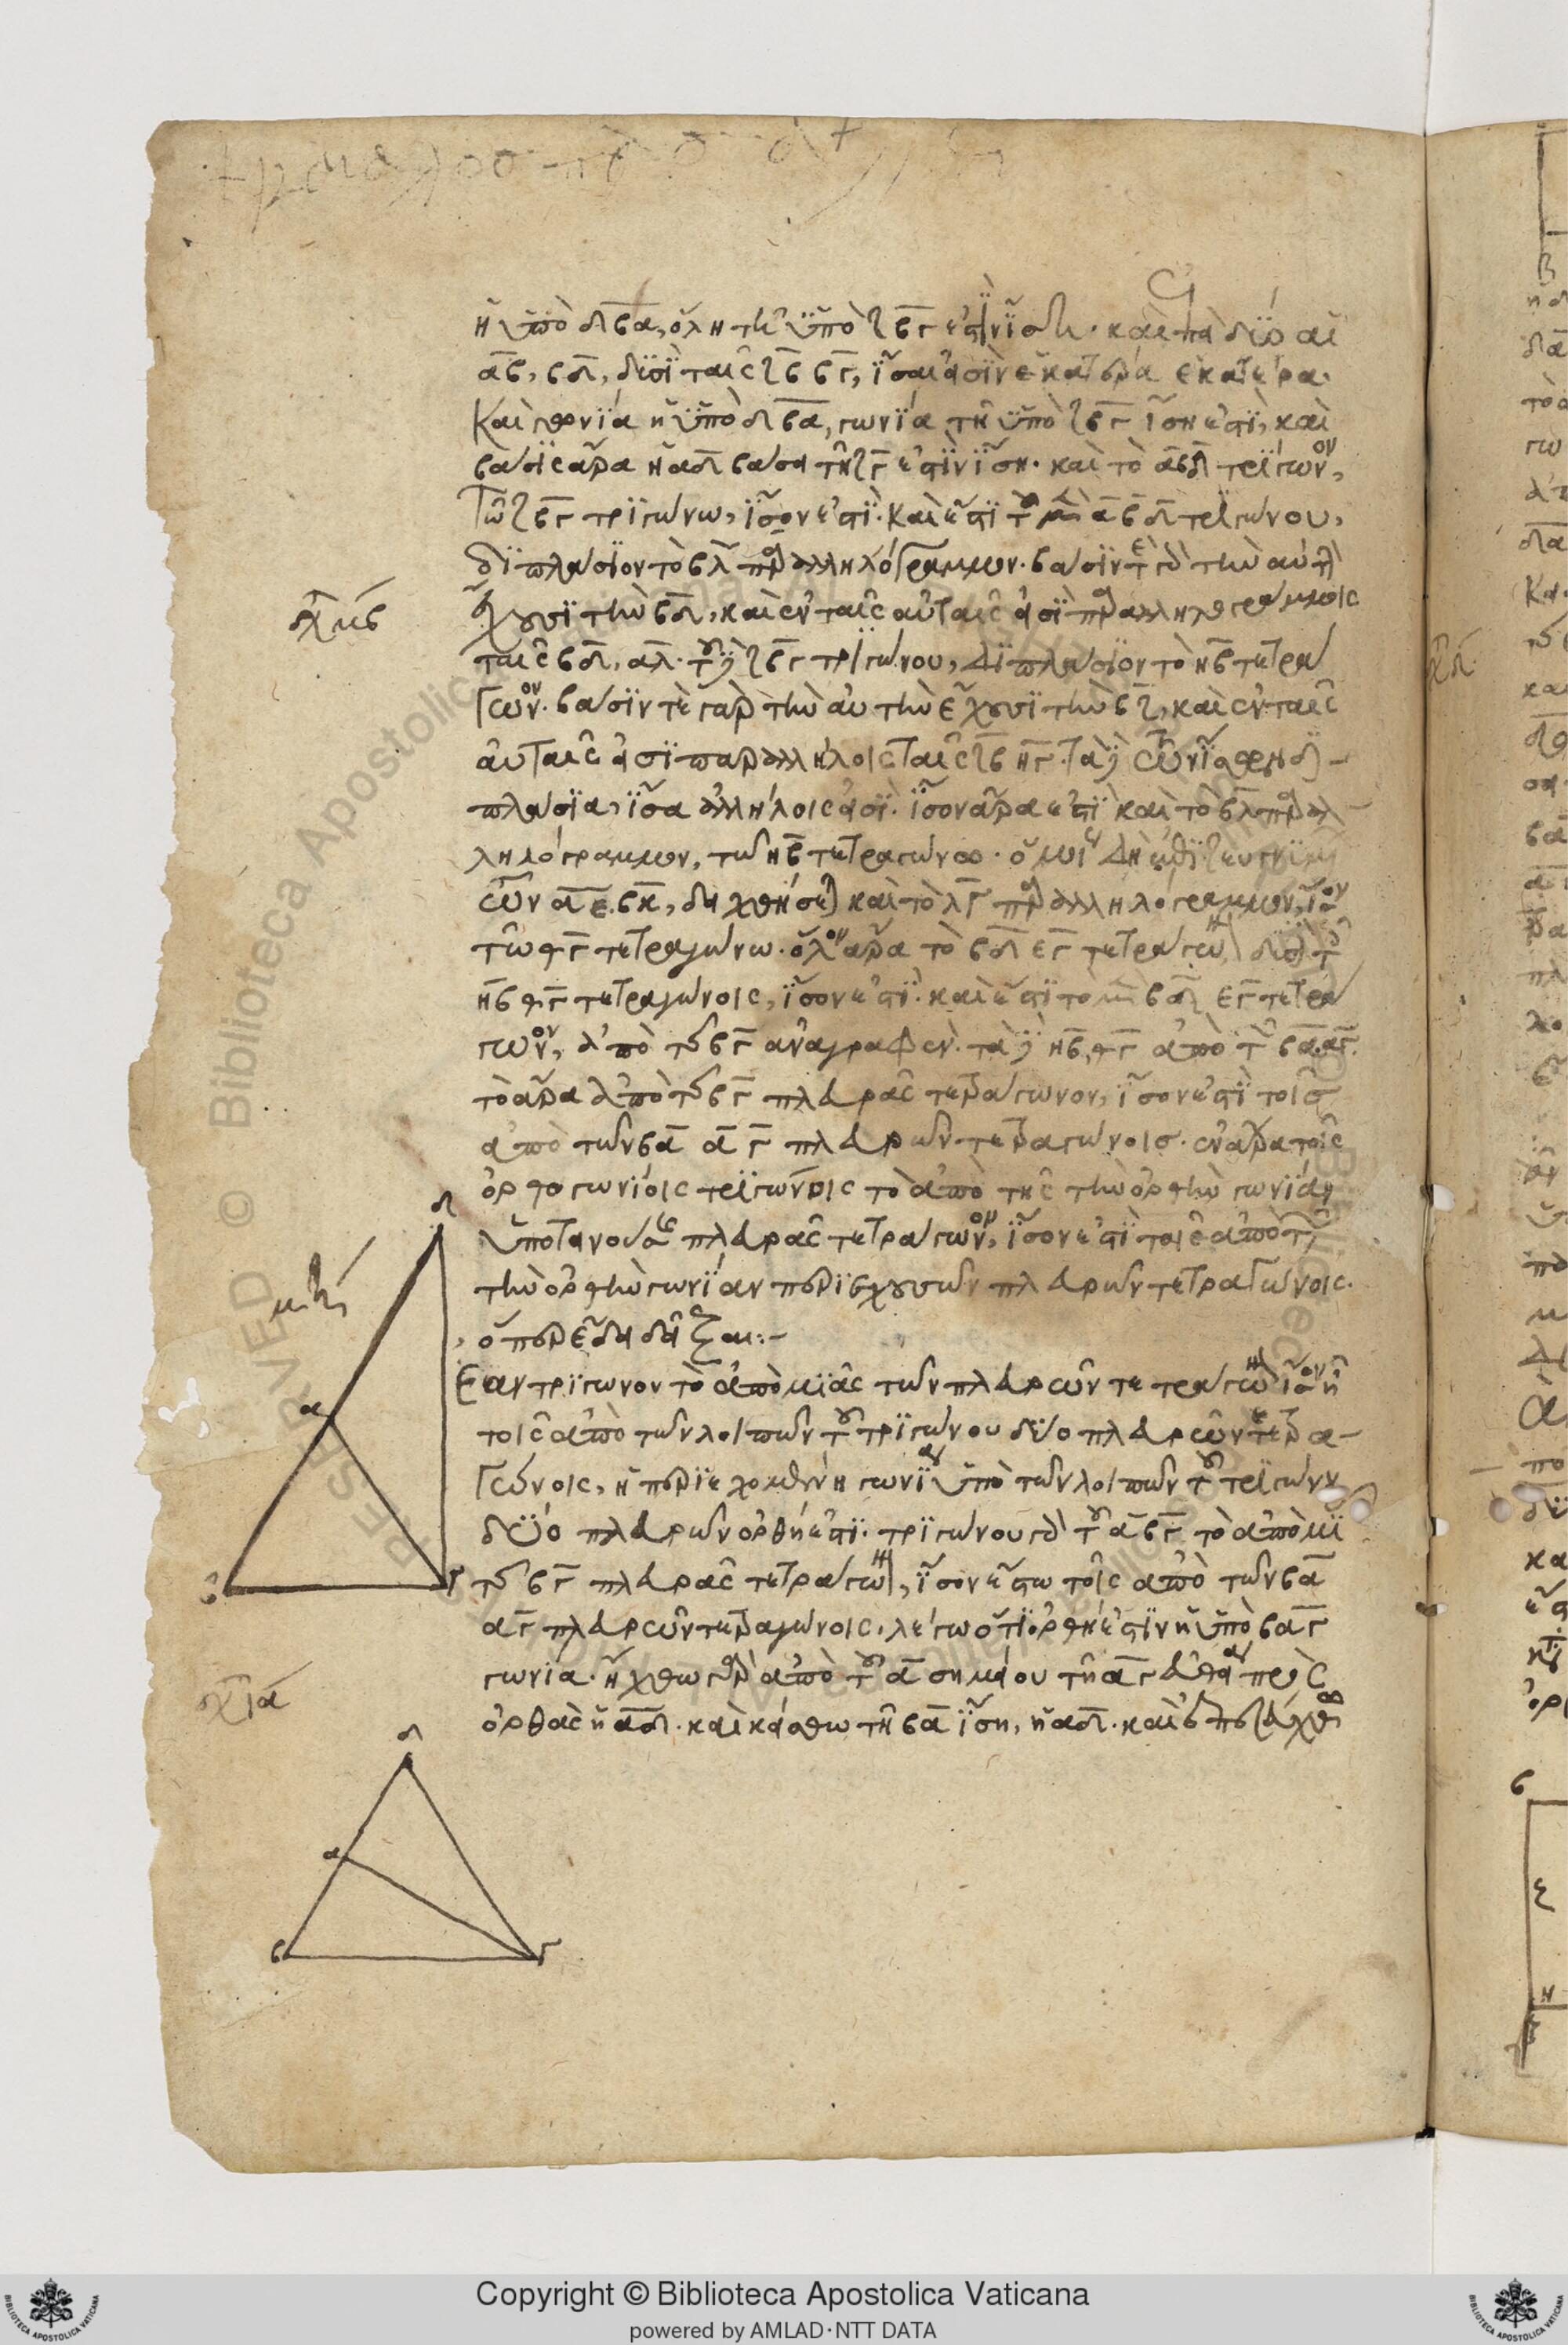 ἡ ὑπὸ δβα, ὅλη τῇ ὑπὸ ζβγ ἐστὶν ἴση. καὶ ἐπεὶ δύο αἱ
αβ, βδ, δυσὶ ταῖς ζβ βγ, ἴσαι εἰσὶν ἑκατέρα ἑκατέρα.
καὶ γωνία ἡ ὑπὸ δβα, γωνία τῇ ὑπὸ ζβγ ἴση ἐστὶ, καὶ
βάσις ἄρα ἡ αδ βάσει τῇ ζγ ἐστὶν ἴση. καὶ τὸ αβδ τρίγωνον,
τῶ ζβγ τριγώνω, ἴσον ἐστὶ. καὶ ἔστι τοῦ μὲν αβδ τριγώνου,
διπλάσιον τὸ βλ παραλληλόγραμμον. βάσιν τε γὰρ τὴν αὐτὴν
ἔχουσι τὴν βδ, καὶ ἐν ταῖς αὐταῖς εἰσὶ παραλλήλοις γραμμαῖς
σχ μβ
ταῖς βδ, αλ. τοῦ δὲ ζβγ τριγώνου, διπλάσιον τὸ ηβ τετρά
γωνον. βάσιν τε γὰρ τὴν αὐτὴν ἔχουσι τὴν βζ, καὶ ἐν ταῖς
αὐταῖς εἰσὶ παραλλήλοις ταῖς ζβ ηγ. τὰ δὲ τῶν ἴσων δι
πλάσια, ἴσα ἀλλήλοις εἰσὶ. ἴσον ἄρα ἐστὶ καὶ τὸ βλ παραλ
ληλόγραμμον, τῶ ηβ τετραγώνω. ὁμοίως δὴ ἐπιζευγνυμέ
νων αε, βκ, δειχθήσεται καὶ τὸ λγ παραλληλόγραμμον, ἴσον
τῶ θγ τετραγώνω. ὅλον ἄρα τὸ βδ εγ τετράγωνον δυσὶ τοῖς
ηβ θγ τετραγώνοις, ἴσον ἐστὶ. καὶ ἔστι τὸ μὲν βδ εγ τετρά
γωνον, ἀπὸ τῆς βγ ἀναγραφὲν. τὰ δὲ ηβ, θγ ἀπὸ τῶν βα, αγ.
τὸ ἄρα ἀπὸ τῆς βγ πλευρᾶς τετράγωνον, ἴσον ἐστὶ τοῖσ
ἀπὸ τῶν βα αγ πλευρῶν τετραγώνοισ. ἐν ἄρα τοῖς
ὀρθογωνίοις τριγώνοις τὸ ἀπὸ τῆς τὴν ὀρθὴν γωνίαν
ὑποτεινούσης πλευρᾶς τετράγωνον, ἴσον ἐστὶ τοῖς ἀπὸ τῶν
τὴν ὀρθὴν γωνίαν περιεχουσῶν πλευρῶν τετραγώνοις.
ὅπερ ἔδει δεῖξαι:-
Ἐὰν τριγώνου τὸ ἀπὸ μιᾶς τῶν πλευρῶν τετράγωνον ἴσον ἦ
τοῖς ἀπὸ τῶν λοιπῶν τοῦ τριγώνου δύο πλευρῶν τετρα-
γώνοις, ἡ περιεχομένη γωνία ὑπὸ τῶν λοιπῶν τοῦ τριγώνου
δύο πλευρῶν ὀρθή ἐστι. τριγώνου γὰρ τοῦ αβγ τὸ ἀπὸ μι
τῆς βγ πλευρᾶς τετράγωνον, ἴσον ἔστω τοῖς ἀπὸ τῶν βα
αγ πλευρῶν τετραγώνοις. λέγω ὅτι ὀρθή ἐστὶν ἡ ὑπὸ βαγ
γωνία. ἤχθω γὰρ ἀπὸ τοῦ α σημείου τῆ αγ εὐθεία πρὸς
ὀρθὰς ἡ αδ. καὶ κείσθω τῆ βα ἴση, ἡ αδ. καὶ ἐπεζεύχθω
δ
α
β
γ
δ
α
β
γ
Copyright © Biblioteca Apostolica Vaticana
powered by AMLAD·NTT DATA